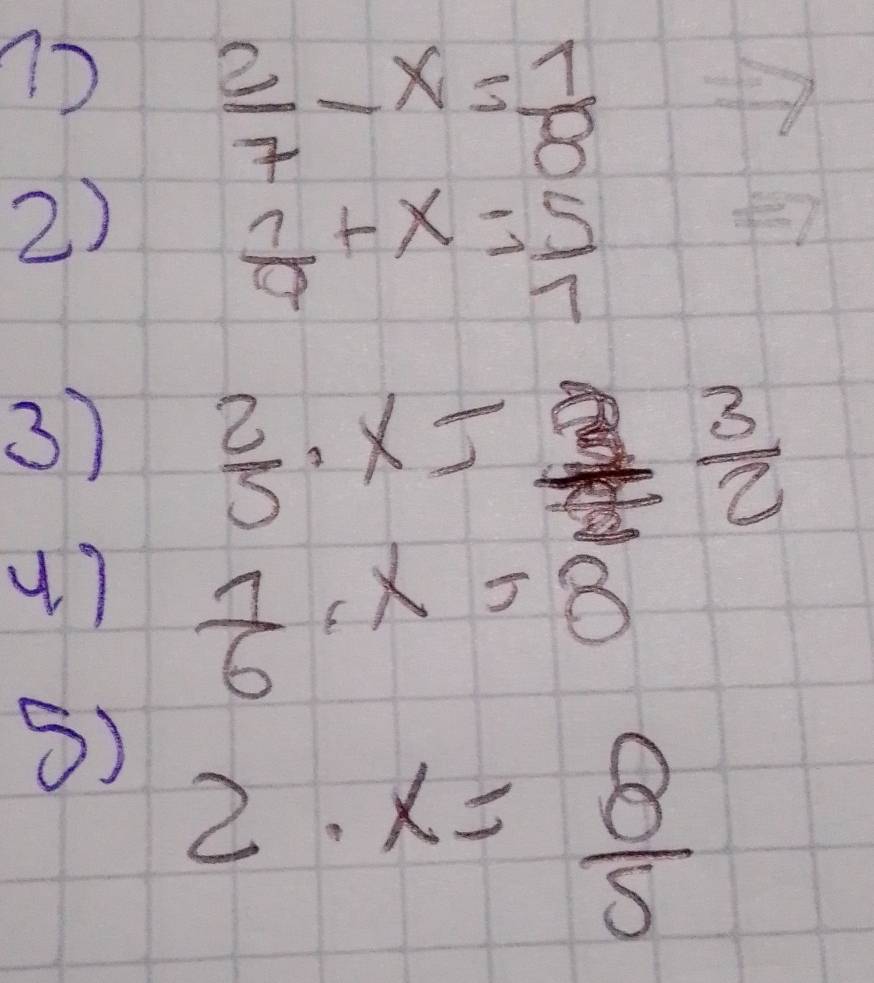 1) 2/7 - x = 1/8 =>
2) 1/9 + x = 5/1 =>
3) 2/5 · x = 3/2
4) 1/6 · x = 8
5) 2 · x = 8/5